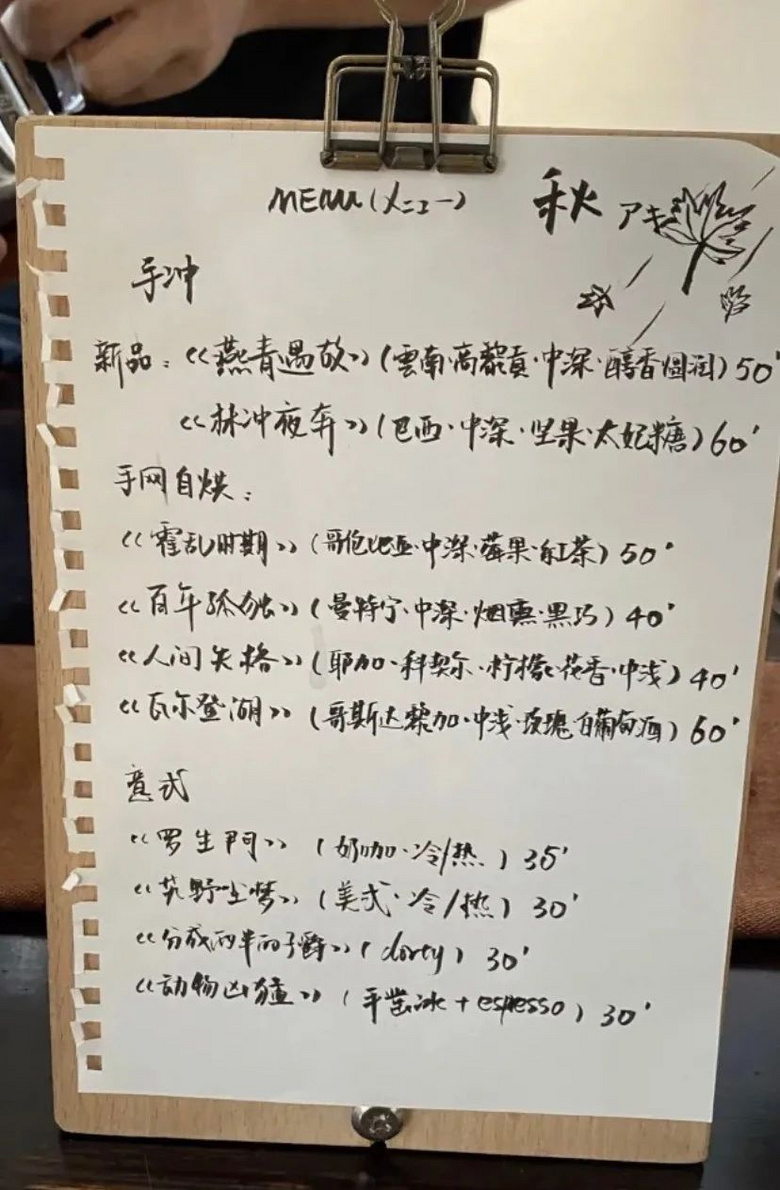 MENU(メニュー)
秋 アキ
手冲
新品：《燕青遇故》(雲南·高黎貢·中深·醇香温润)50'
《林冲夜奔》(巴西·中深·坚果·太妃糖)60'
手网自烘：
《霍乱时期》(哥伦比亚·中深·莓果·紅茶)50'
《百年孤独》(曼特宁·中深·烟熏·黑巧)40'
《人间失格》(耶加·科契尔·柠檬·花香·中浅)40'
《瓦尔登湖》(哥斯达黎加·中浅·玫瑰·白葡萄酒)60'
意式
《罗生門》(奶咖·冷/热)35'
《艽野尘梦》(美式·冷/热)30'
《分成两半的子爵》(dirty)30'
《动物凶猛》(手凿冰+espresso)30'